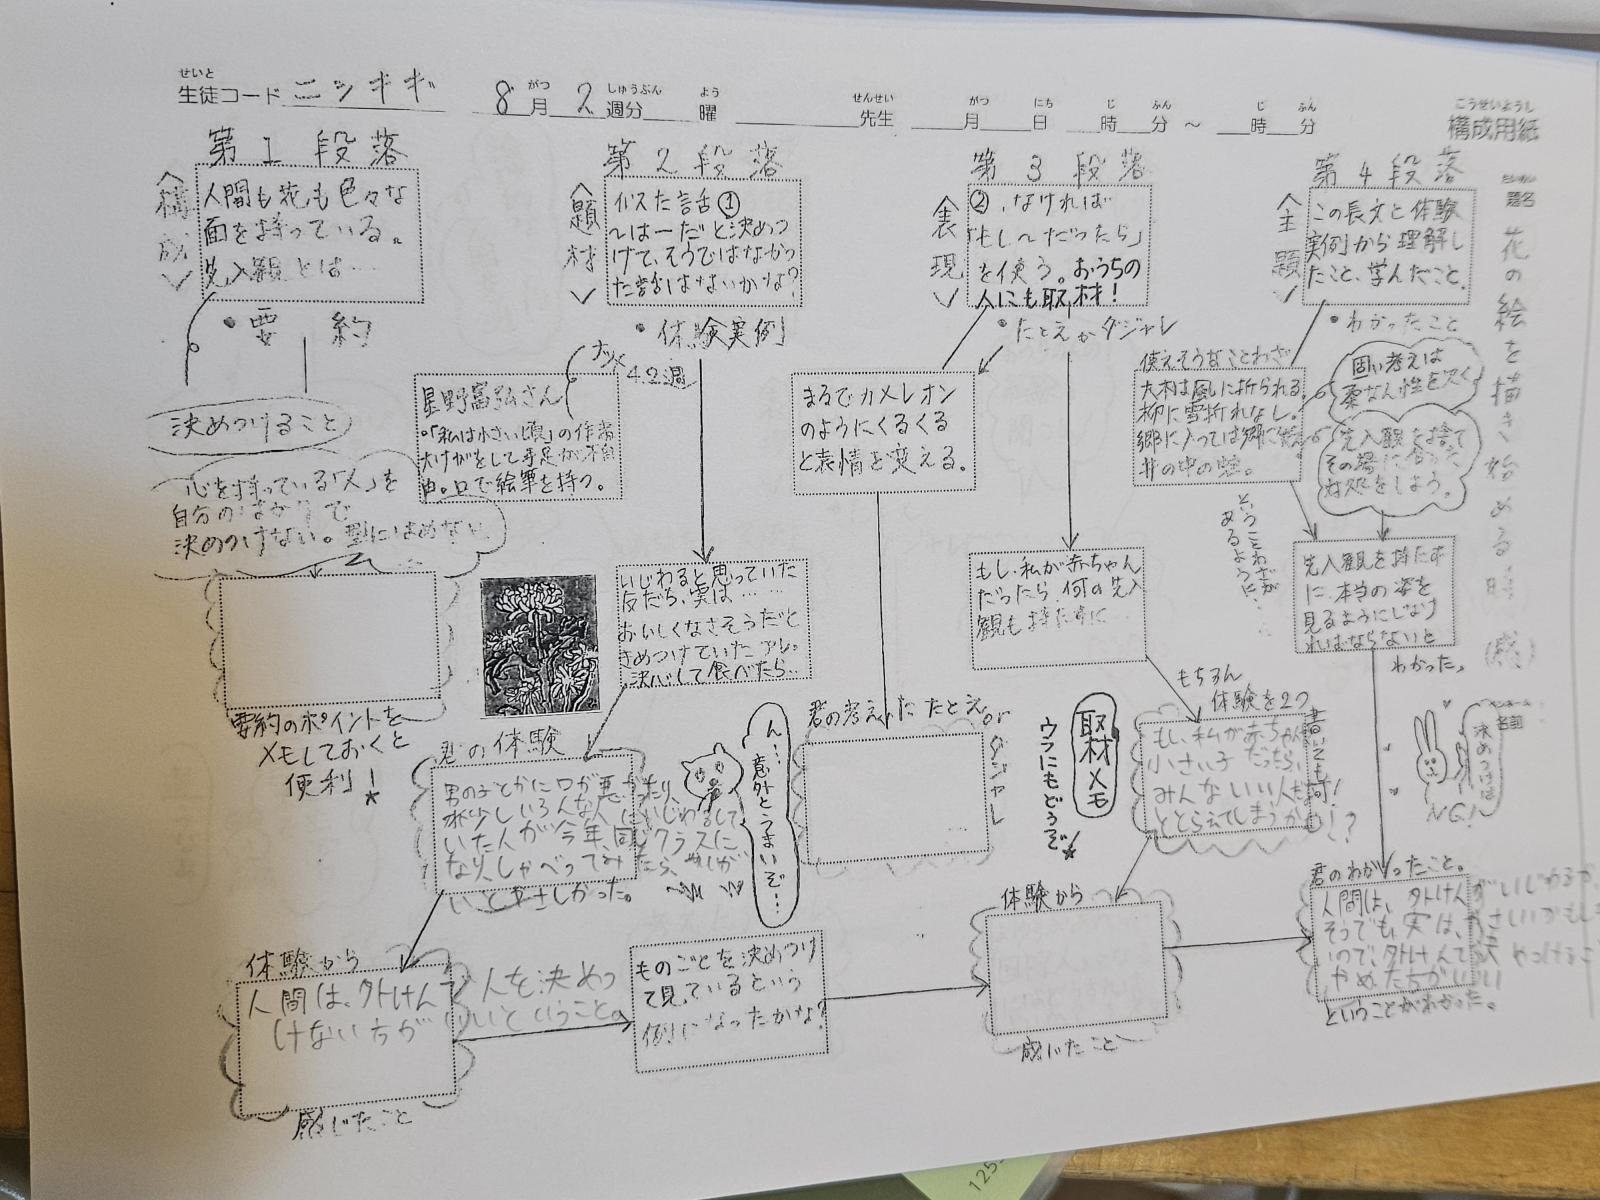 生徒コード ニシギギ 8月2週分 曜 先生 月 日 時 分 ～ 時 分
構成用紙
題名
花の絵を描き始める時 (感)
第1段落
<構成>
人間も花も色々な
面を持っている。
先入観とは…
・要約
決めつけること
心を持っている「人」を
自分の
決めつけない。型にはめない
要約のポイントを
メモしておくと
便利!
第2段落
<題材>
似た話①
〜は〜だと決めつ
けて、そうではなかっ
た話はないかな?
・体験実例
星野富弘さん
・「私は小さい頃」の作者
大けがをして手足が不自
由。口で絵筆を持つ。
いじわると思っていた
友だち、実は……
おいしくなさそうだと
きめつけていたアレ。
決心して食べたら…
君の体験
男の子とかに口が悪かったり、
いろんな人にいじわるして
いた人が今年、同じクラスに
なり、しゃべってみたら、
いとやさしかった。
ん…意外とうまいぞ…
体験から
人間は、外けんで人を決めつ
けない方がいいということ。
感じたこと
ものごとを決めつけ
て見ているという
例になったかな?
第3段落
<表現>
②、なければ
「もし〜だったら」
を使う。おうちの
人にも取材!
・たとえかダジャレ
まるでカメレオン
のようにくるくる
と表情を変える。
もし、私が赤ちゃん
だったら、何の先入
観も持たずに
君の考えたたとえorダジャレ
取材メモ
ウラにもどうぞ
もちろん
体験を2つ
書いても可!
もし、私が赤ちゃん
小さい子だったら、
みんないい人だ
ととらえてしまうかも!?
体験から
感じたこと
第4段落
<主題>
この長文と体験
実例から理解し
たこと、学んだこと。
・わかったこと
使えそうなことわざ
大木は風に折られる。
柳に雪折れなし。
郷に入っては郷に従え
井の中の蛙。
固い考えは
柔なん性を欠く
先入観を捨て
その場に合った
対処をしよう。
ということわざが
あるように…
先入観を持たず
に、本当の姿を
見るようにしなけ
ればならないと
わかった。
ペンネーム
名前
決めつけは
NG!!
君のわかったこと。
人間は、外けんがいじわるっ
そうでも、実は、やさしいかもしれ
いので、外けんで決めつけるこ
やめたほうがいい
ということがわかった。